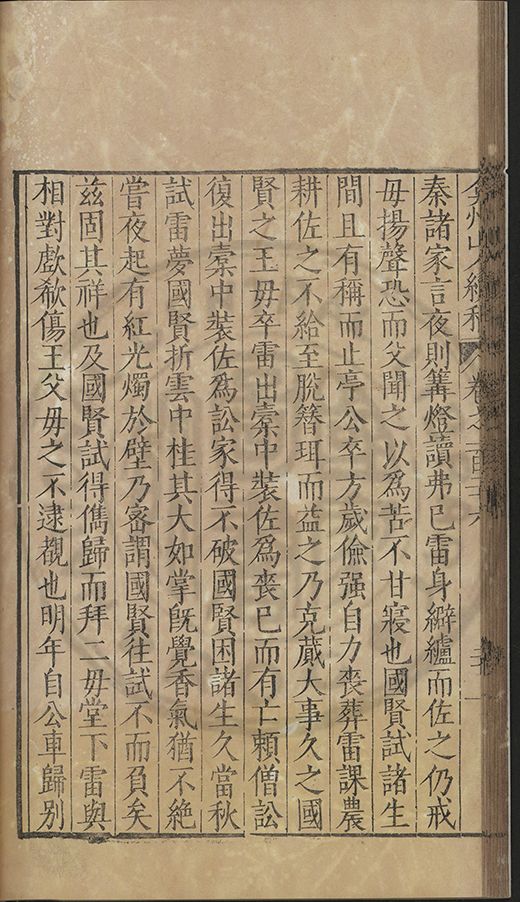 弇州山人續稿 卷之一百二十六
秦諸家言夜則篝燈讀弗已雷身辮纑而佐之仍戒
毋揚聲恐而父聞之以為苦不甘寢也國賢試諸生
間且有稱而止亭公卒方歲儉强自力喪葬雷課農
耕佐之不給至脫簪珥而益之乃克蕆大事久之國
賢之王毋卒雷出槖中裝佐爲喪已而有亡賴僧訟
復出槖中裝佐爲訟家得不破國賢困諸生久當秋
試雷夢國賢折雲中桂其大如掌旣覺香氣猶不絶
嘗夜起有紅光燭於壁乃密謂國賢往試不而負矣
茲固其祥也及國賢試得儁歸而拜二毋堂下雷與
相對歔欷傷王父毋之不逮覩也明年自公車歸別